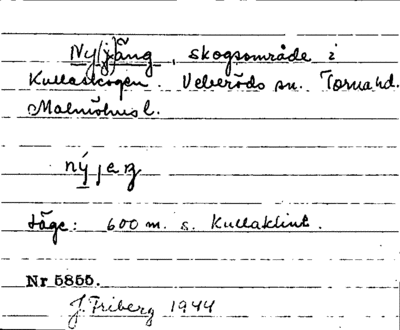 Ny(j)äng, skogsområde i
Kullaskogen. Veberöds sn. Torna hd.
Malmöhus l.
Läge: 600 m. s. Kullaklint.
Nr 5855.
J. Friberg 1944